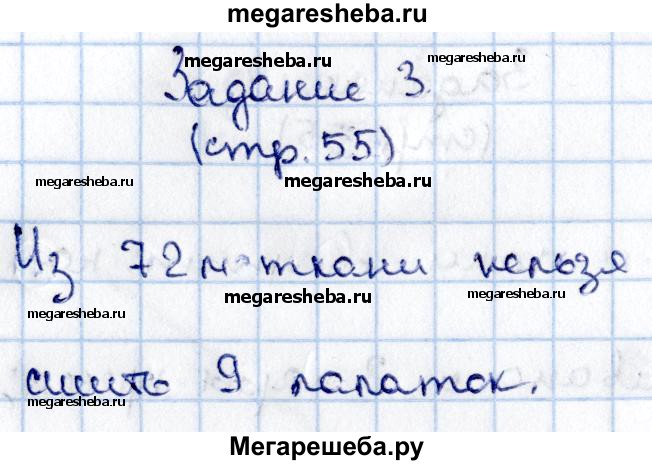 megaresheba.ru
megaresheba.ru megaresheba.ru
Задание 3.
(стр. 55)
megaresheba.ru megaresheba.ru
Из 72 м ткани нельзя
megaresheba.ru megaresheba.ru
megaresheba.ru
сшить 9 палаток.
megaresheba.ru megaresheba.ru
Мегарешеба.ру